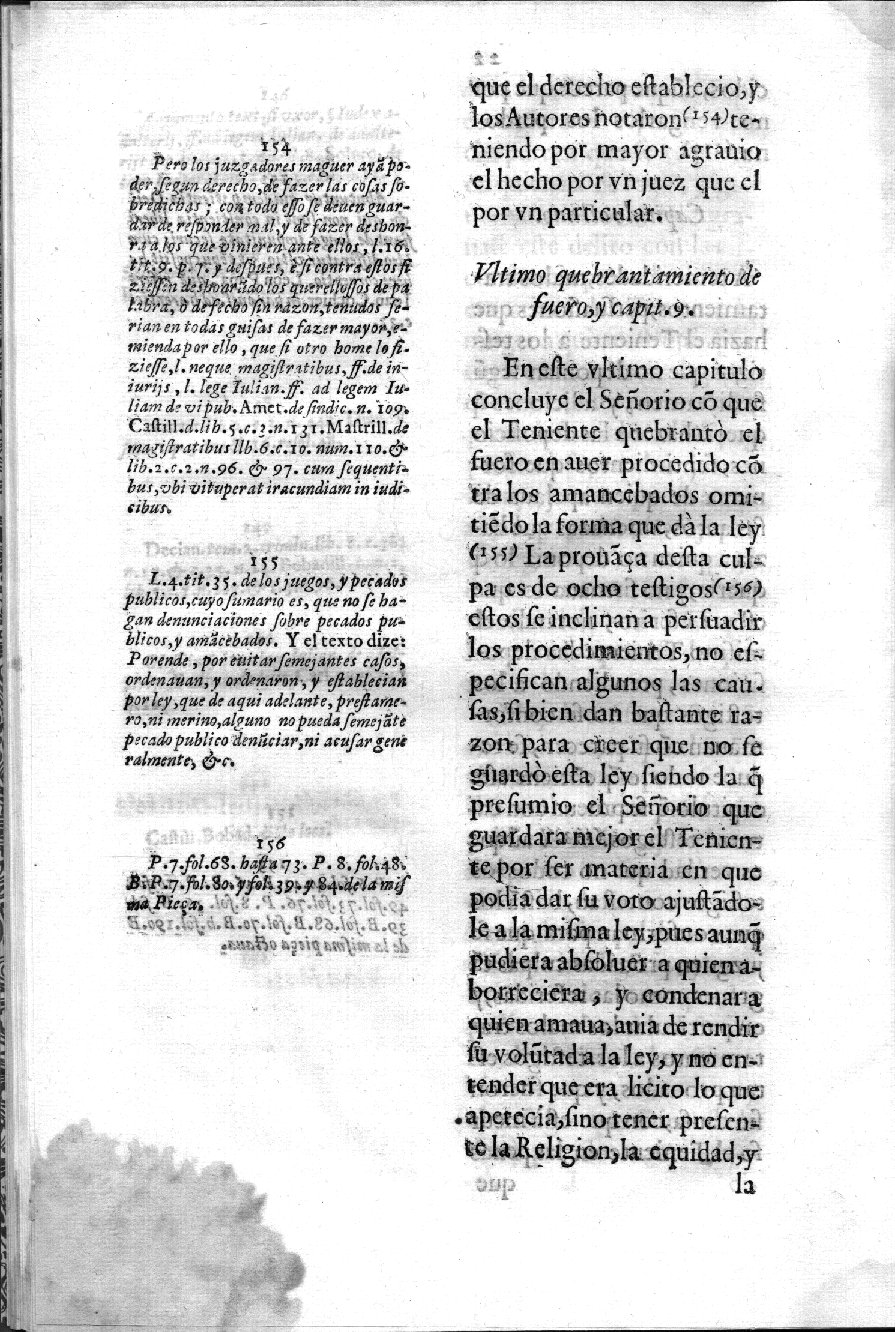 154
Pero los juzgadores maguer ayā po-
der, segun derecho, de fazer las cosas so-
bredichas; con todo esso se deuen guar-
dar de responder mal, y de fazer deshon-
rra los que vinieren ante ellos, l.16.
tit.9. p.7. y despues, è si contra estos fi
ziessen deshonrādo los querellosos de pa
labra, ò de fecho sin razon, tenudos se-
rian en todas guisas de fazer mayor, e-
mienda por ello, que si otro home lo fi-
ziesse, l. neque magistratibus, ff. de in-
iurijs, l. lege Iulian. ff. ad legem Iu-
liam de vi pub. Amet. de sindic. n. 109.
Castill. d. lib. 5. c. 3. n. 131. Mastrill. de
magistratibus lib. 6. c. 10. num. 110. &
lib. 2. c. 2. n. 96. & 97. cum sequenti-
bus, vbi vituperat iracundiam in iudi-
cibus.
155
L.4. tit. 35. de los juegos, y pecados
publicos, cuyo sumario es, que no se ha-
gan denunciaciones sobre pecados pu-
blicos, y amācebados. Y el texto dize:
Porende, por euitar semejantes casos,
ordenauan, y ordenaron, y establecian
por ley, que de aqui adelante, prestame-
ro, ni merino, alguno no pueda semejāte
pecado publico denūciar, ni acusar gene
ralmente, &c.
156
P.7. fol. 68. hasta 73. P. 8. fol. 48.
B. P.7. fol. 80. y fol. 39. y 84. de la mis
ma Pieça.
que el derecho establecio, y
los Autores notaron (154) te-
niendo por mayor agrauio
el hecho por vn juez que el
por vn particular.
Vltimo quebrantamiento de
fuero, y capit. 9.
En este vltimo capitulo
concluye el Señorio cō que
el Teniente quebrantò el
fuero en auer procedido cō
tra los amancebados omi-
tiēdo la forma que dà la ley
(155) La prouāça desta cul-
pa es de ocho testigos (156)
estos se inclinan a persuadir
los procedimientos, no es-
pecifican algunos las cau-
sas, si bien dan bastante ra-
zon para creer que no se
guardò esta ley siendo la q̄
presumio el Señorio que
guardara mejor el Tenien-
te por ser materia en que
podia dar su voto ajustādo-
le a la misma ley, pues aunq̄
pudiera absoluer a quien a-
borreciera, y condenar a
quien amaua, auia de rendir
su volūtad a la ley, y no en-
tender que era licito lo que
apetecia, sino tener presen-
te la Religion, la equidad, y
la